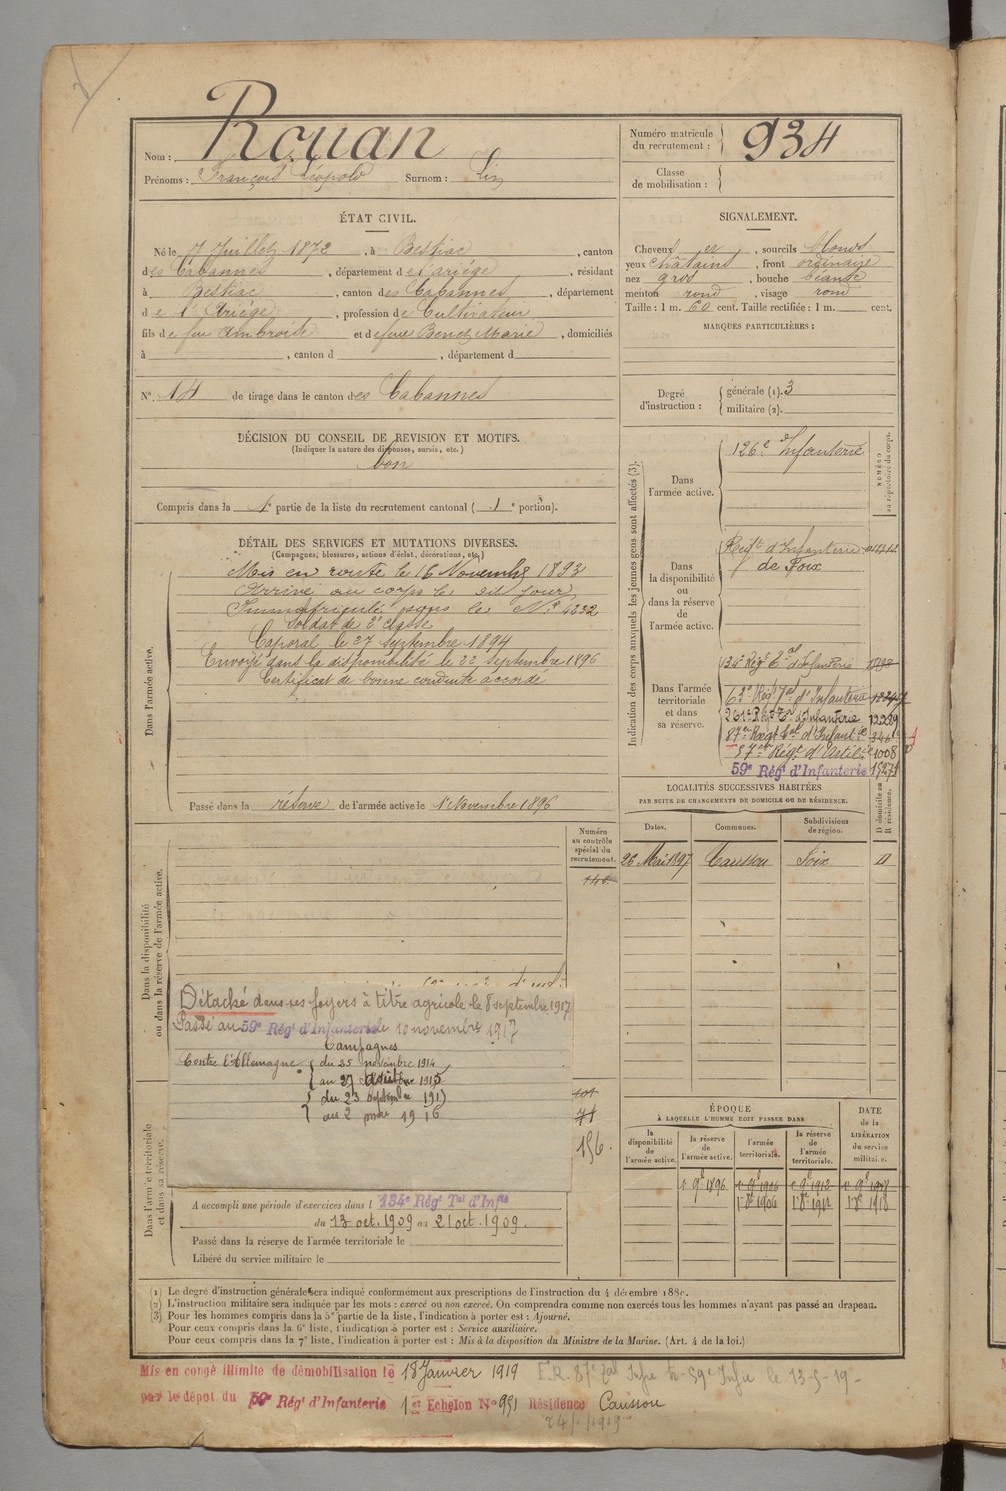 Nom : Rouan
Prénoms : François Léopold Surnom :
Numéro matricule du recrutement : 934
Classe de mobilisation :
ÉTAT CIVIL.
Né le 7 Juillet 1872, à Bestiac, canton
des Cabannes, département de l'ariége, résidant
à Bestiac, canton des Cabannes, département
de l'Ariége, profession de Cultivateur
fils de feu Ambroise et de feue Benet Marie, domiciliés
à , canton d , département d
N° 14 de tirage dans le canton des Cabannes
DÉCISION DU CONSEIL DE REVISION ET MOTIFS.
(Indiquer la nature des dispenses, sursis, etc.)
bon
Compris dans la 1e partie de la liste du recrutement cantonal ( 1e portion).
DÉTAIL DES SERVICES ET MUTATIONS DIVERSES.
(Campagnes, blessures, actions d'éclat, décorations, etc.)
Dans l'armée active.
Mis en route le 16 Novembre 1893
Arrivé au corps le dit jour
Immatriculé sous le N° 4232
Soldat de 2e classe
Caporal le 27 septembre 1894
Envoyé dans la disponibilité le 22 septembre 1896
Certificat de bonne conduite accordé
Passé dans la réserve de l'armée active le 1 Novembre 1896
Numéro au contrôle spécial du recrutement.
Dans la disponibilité ou dans la réserve de l'armée active.
Détaché dans ses foyers à titre agricole le 8 septembre 1917
Passé au 59e Régt d'Infanterie le 10 novembre 1917
Campagnes
Contre l'Allemagne du 25 novembre 1914
au 27 août 1915
du 23 septembre 1915
au 2 mai 1916
71
156.
Dans l'armée territoriale et dans sa réserve.
A accompli une période d'exercices dans l 134e Régt Tal d'Infie
du 13 oct. 1909 au 21 oct. 1909.
Passé dans la réserve de l'armée territoriale le
Libéré du service militaire le
SIGNALEMENT.
Cheveux et , sourcils blonds
yeux châtains , front ordinaire
nez gros , bouche béante
menton rond , visage rond
Taille : 1 m. 60 cent. Taille rectifiée : 1 m. cent.
MARQUES PARTICULIÈRES :
Degré d'instruction : générale (1). 3
militaire (2).
Indication des corps auxquels les jeunes gens sont affectés (3).
NUMÉRO au répertoire du corps.
Dans l'armée active.
126e Infanterie
Dans la disponibilité ou dans la réserve de l'armée active.
Régt d'Infanterie
de Foix
Dans l'armée territoriale et dans sa réserve.
134e Régt Tal d'Infanterie
63e Régt Tal d'Infanterie
261e Régt Tal d'Infanterie 12289
87e Régt Tal d'Infantie
57e Régt d'Artile 1008
59e Régt d'Infanterie 15271
LOCALITÉS SUCCESSIVES HABITÉES
PAR SUITE DE CHANGEMENTS DE DOMICILE OU DE RÉSIDENCE.
Dates. Communes. Subdivisions de région. D domicile ou R résidence.
26 Mai 1897 Caussou Foix D
ÉPOQUE
À LAQUELLE L'HOMME DOIT PASSER DANS
DATE de la LIBÉRATION du service militaire.
la disponibilité de l'armée active. la réserve de l'armée active. l'armée territoriale. la réserve de l'armée territoriale.
1 9e 1896 1 9e 1906 1 9e 1912 1 9e 1918
1 8e 1906 1 8e 1912 1 8e 1918
(1) Le degré d'instruction générale sera indiqué conformément aux prescriptions de l'instruction du 4 décembre 1889.
(2) L'instruction militaire sera indiquée par les mots : exercé ou non exercé. On comprendra comme non exercés tous les hommes n'ayant pas passé au drapeau.
(3) Pour les hommes compris dans la 5e partie de la liste, l'indication à porter est : Ajourné.
Pour ceux compris dans la 6e liste, l'indication à porter est : Service auxiliaire.
Pour ceux compris dans la 7e liste, l'indication à porter est : Mis à la disposition du Ministre de la Marine. (Art. 4 de la loi.)
Mis en congé illimité de démobilisation le 18 Janvier 1919 F.R. 87e Tal Infie le 13-5-19-
par le dépot du 59e Régt d'Infanterie 1er Echelon N° 951 Résidence Caussou